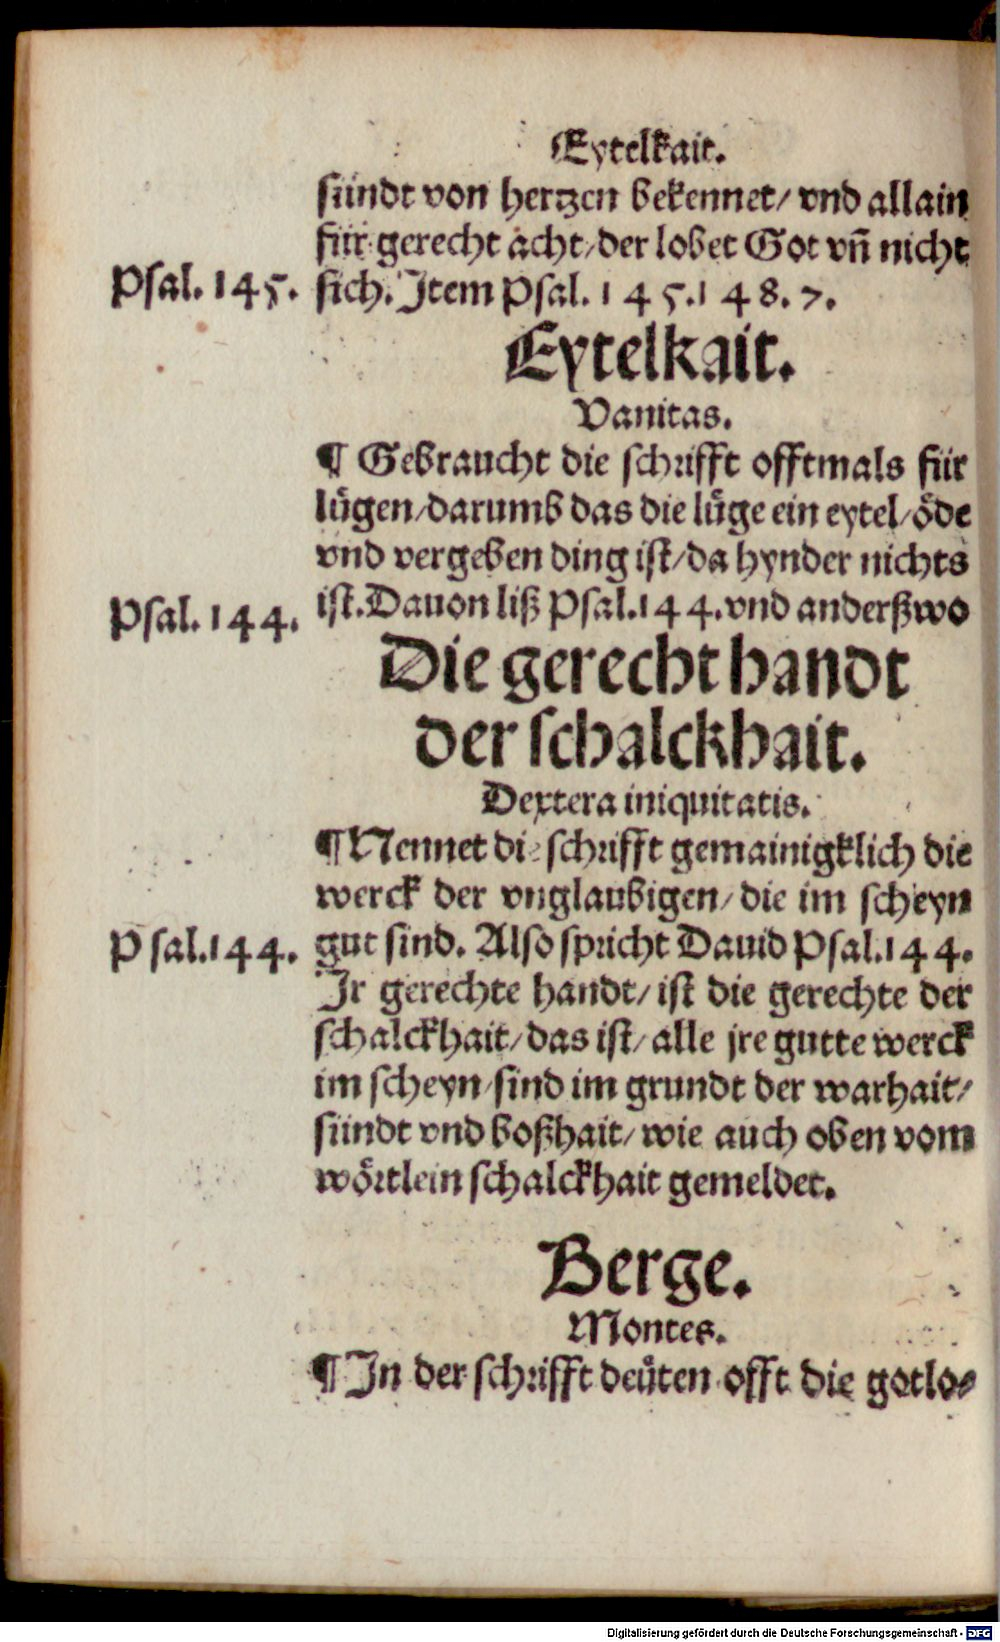 Eytelkait.
sündt von hertzen bekennet/ vnd allain
für gerecht acht/der lobet Got vñ nicht
Psal. 145. sich. Item Psal. 145.148.7.
Eytelkait.
Vanitas.
¶ Gebraucht die schrifft offtmals für
lůgen/darumb das die lůge ein eytel/öde
vnd vergeben ding ist/da hynder nichts
Psal. 144. ist.Dauon liß Psal.144.vnd anderßwo
Die gerecht handt
der schalckhait.
Dextera iniquitatis.
¶Nennet die schrifft gemainigklich die
werck der vnglaubigen/ die im scheyn
Psal.144. gut sind. Also spricht Dauid Psal.144.
Ir gerechte handt/ ist die gerechte der
schalckhait/das ist/ alle jre gutte werck
im scheyn/sind im grundt der warhait/
sündt vnd boßhait/ wie auch oben vom
wörtlein schalckhait gemeldet.
Berge.
Montes.
¶In der schrifft deüten offt die gotlo⸗
Digitalisierung gefördert durch die Deutsche Forschungsgemeinschaft - DFG